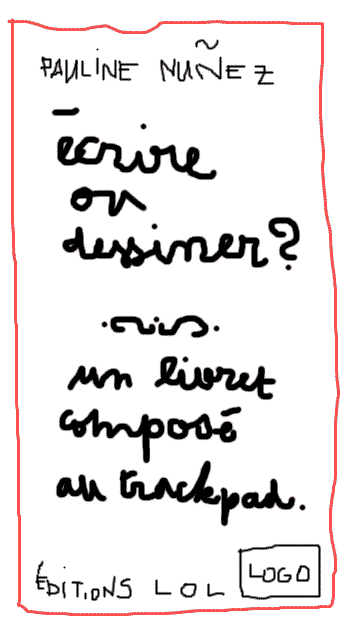 PAULINE NUÑEZ
écrire
ou
dessiner?
un livret
composé
au trackpad.
ÉDITIONS LOL
LOGO